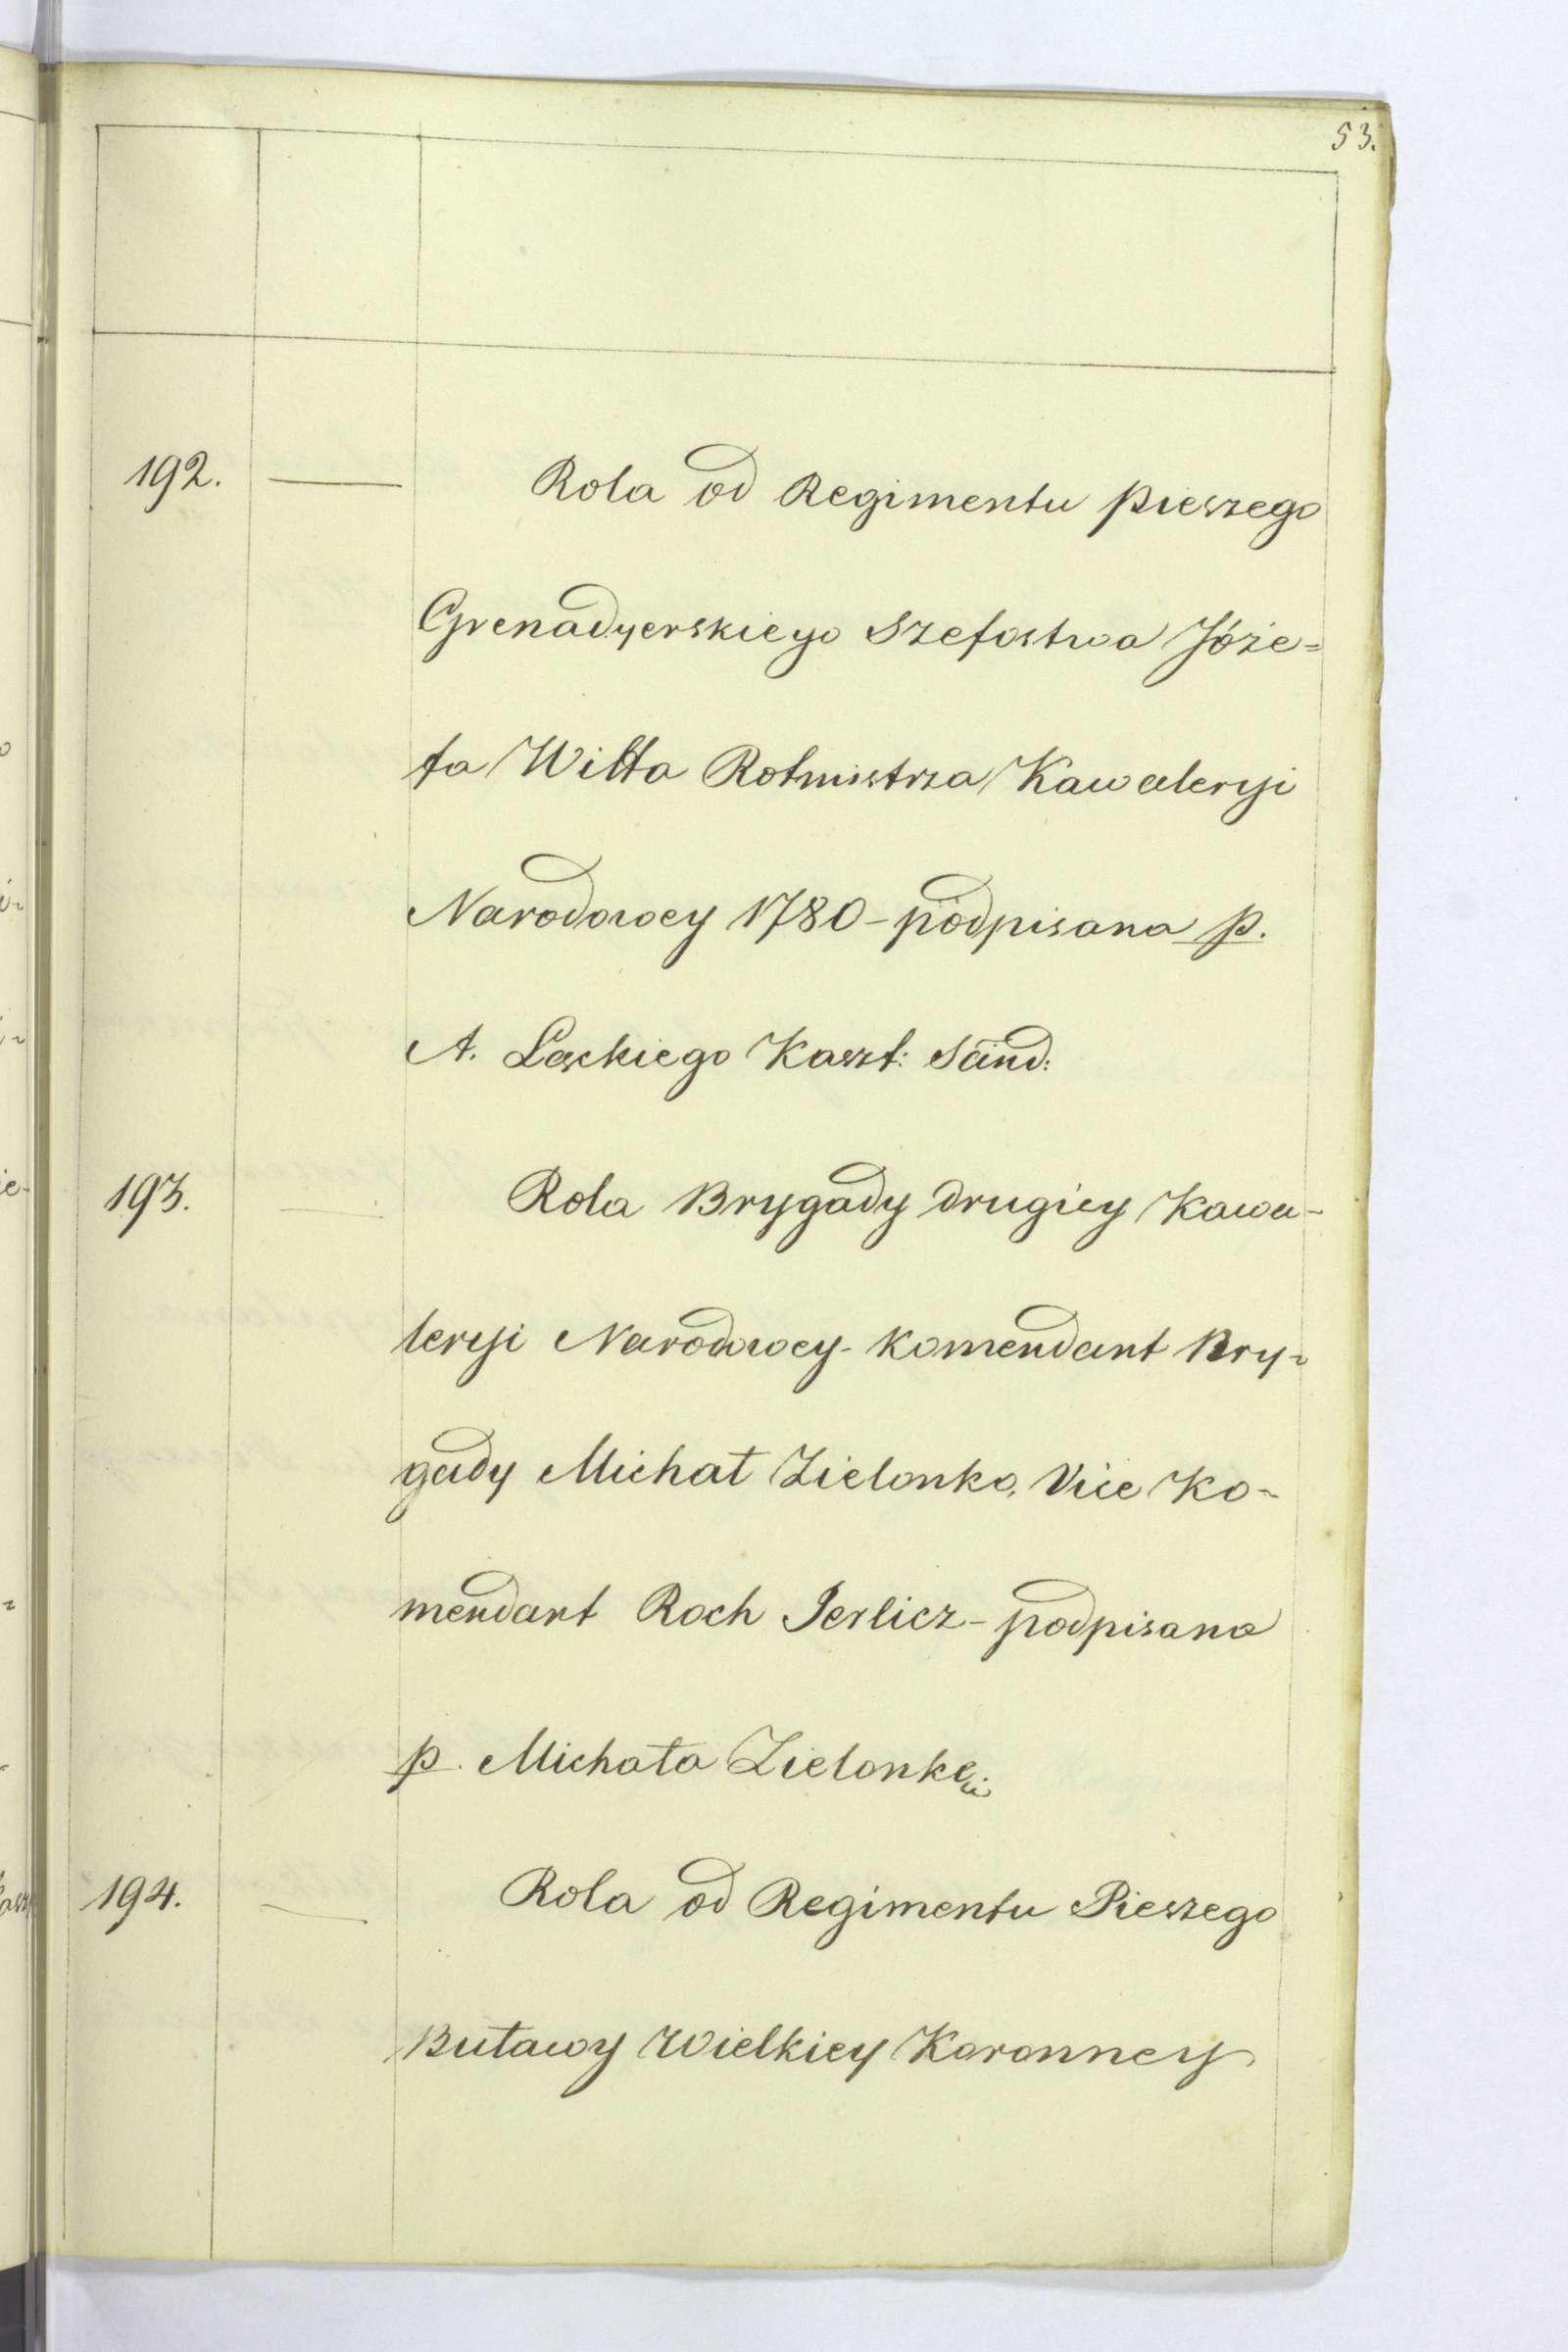 53.
192. — Rola od Regimentu pieszego
Grenadyerskiego Szefostwa Józe=
fa Witta Rotmistrza Kawaleryi
Narodowey 1780 – podpisana p.
A. Lackiego Kaszt: Sand:
193. — Rola Brygady drugiey Kawa-
leryi Narodowey – Komendant Bry=
gady Michał Zielonko, Vice Ko-
mendant Roch Jerlicz – podpisana
p. Michała Zielonkę
194. — Rola od Regimentu Pieszego
Buławy Wielkiey Koronney